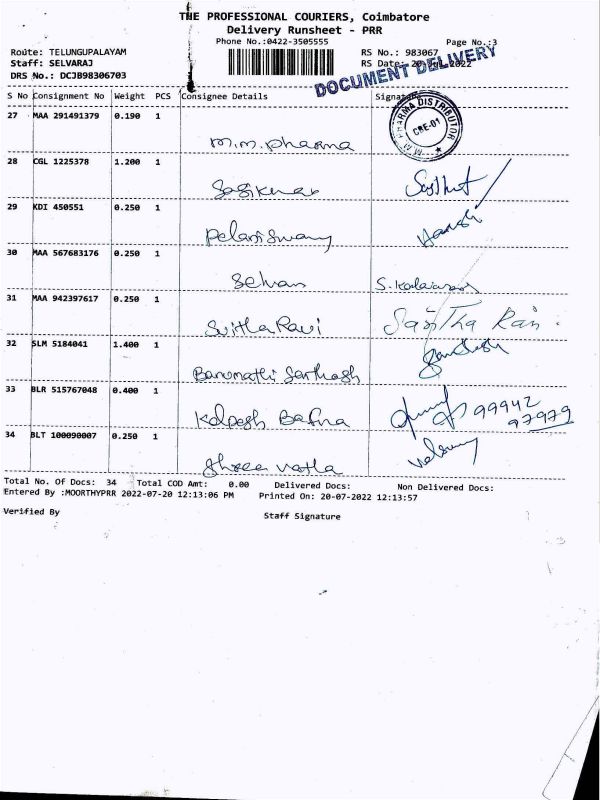 THE PROFESSIONAL COURIERS, Coimbatore
Delivery Runsheet - PRR
Phone No.:0422-3505555
Page No.:3
Route: TELUNGUPALAYAM
RS No.: 983067
Staff: SELVARAJ
RS Date: 20 Jul 2022
DRS No.: DCJB98306703
DOCUMENT DELIVERY
S No Consignment No Weight PCS Consignee Details Signature
27 MAA 291491379 0.190 1
M.M. Pharma
M.M. PHARMA DISTRIBUTOR
CBE-01
28 CGL 1225378 1.200 1
Sasikumar
29 KDI 450551 0.250 1
Palaniswamy
30 MAA 567683176 0.250 1
Selvan
31 MAA 942397617 0.250 1
32 SLM 5184041 1.400 1
Banumathi Santhosh
33 BLR 515767048 0.400 1
Kalpesh Bafna 99942
97979
34 BLT 100090007 0.250 1
Shree
Total No. Of Docs: 34 Total COD Amt: 0.00 Delivered Docs: Non Delivered Docs:
Entered By :MOORTHYPRR 2022-07-20 12:13:06 PM Printed On: 20-07-2022 12:13:57
Verified By Staff Signature